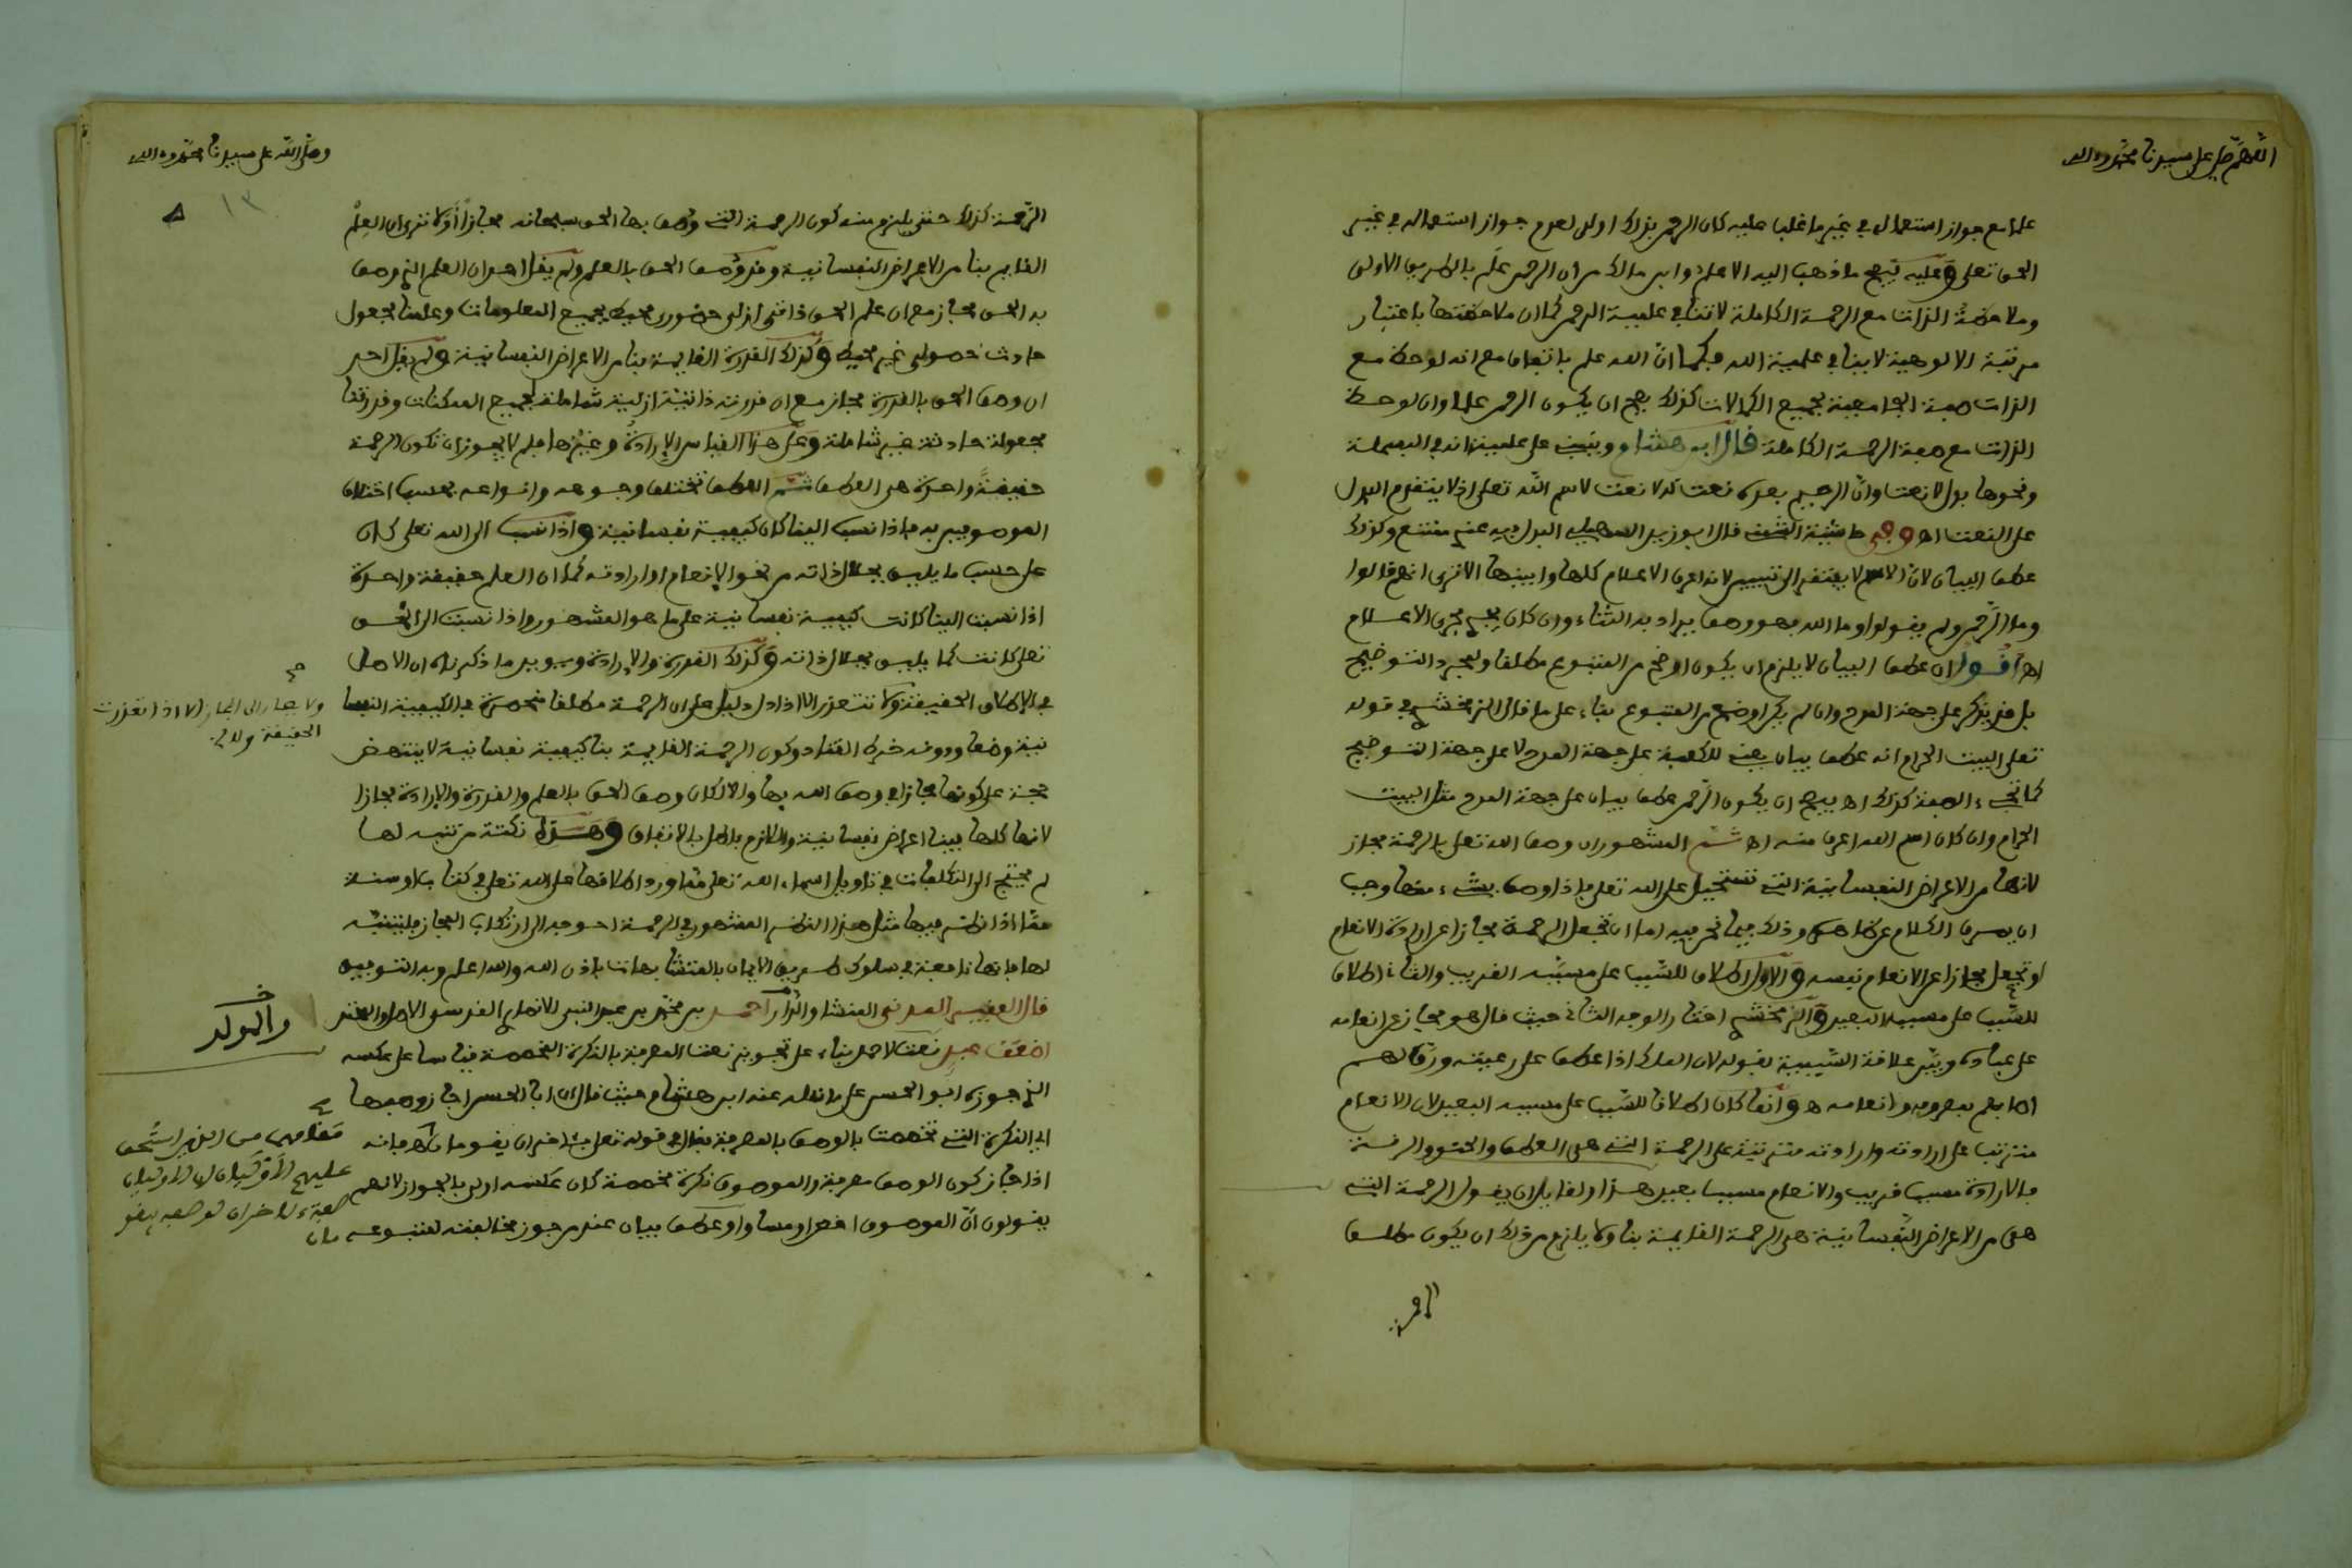 اللهم صل على سيدنا محمد وءاله
علما مع جواز استعماله في غير ما غلب عليه كان الرحمن بذلك اولى لعدم جواز استعماله في غير
الحق تعلى وعليه يتجه ما ذهب اليه الاعلم وابن مالك من ان الرحمن علم بالطريق الاولى
وملاحظة الذات مع الرحمة الكاملة لا تنافي علمية الرحمن كما ان ملاحظتها باعتبار
مرتبة الالوهية لا ينافي علمية الله فكما انّ الله علم باتفاق مع انه لوحظ مع
الذات صفة الجامعية لجميع الكمالات كذلك يصح ان يكون الرحمن علما وان لوحظ
الذات مع صفة الرحمة الكاملة قال ابن هشام وينبني على علميته انه في البسملة
ونحوها بدل لا نعت وانّ الرحيم بعده نعت له لا نعت لاسم الله تعلى اذ لا يتقدم البدل
على النعت اهـ وفي حاشية الشمني قال ابو زيد السهيلي البدل فيه عندي ممتنع وكذلك
عطف البيان لانّ الاسم لا يفتقر الى تبيين لانه اعرف الاعلام كلها وابينها الا ترى انهم قالوا
وما الرّحمن ولم يقولوا وما الله فهو وصف يراد به الثناء وان كان يجري مجرى الاعلام
اهـ اقول ان عطف البيان لا يلزم ان يكون اوضح من المتبوع مطلقا ولمجرد التوضيح
بل قد يذكر على جهة المدح وان لم يكن اوضح من المتبوع بناء على ما قال الزمخشري في قوله
تعلى البيت الحرام انه عطف بيان يعني للكعبة على جهة المدح لا على جهة التوضيح
كما تجيء الصفة كذلك اهـ فيصح ان يكون الرّحمن عطف بيان على جهة المدح مثل البيت
الحرام وان كان اسم الله اعرف منه اهـ ثم المشهور ان وصف الله تعلى بالرحمة مجاز
لانها من الاعراض النفسانية التي تستحيل على الله تعلى فاذا وصف بشيء منها وجب
ان يصرف الكلام عن ظاهره وذلك فيما نحن فيه اما ان تجعل الرحمة مجازا عن ارادة الانعام
او تجعل مجازا عن الانعام نفسه والاول اطلاق للسّبب على مسبّبه القريب والثاني اطلاق
للسّبب على مسببه البعيد والزمخشري اختار الوجه الثاني حيث قال هو مجاز عن انعامه
على عباده وبيّن علاقة السّببية بقوله لان الملك اذا عطف على رعيته ورق لهم
اصابهم بمعروفه وانعامه اهـ وانما كان اطلاقا للسّبب على مسببه البعيد لان الانعام
مترتب على ارادته وارادته مترتبة على الرحمة التي هي العطف والحنو والرقة
فالارادة مسبب قريب والانعام مسبب بعيد هذا ولقايل ان يقول الرحمة التي
هي من الاعراض النّفسانية هي الرحمة القايمة بنا ولا يلزم من ذلك ان يكون مطلق
وصلّى الله على سيدنا محمد وءاله
١٣
الرّحمة كذلك حتى يلزم منه كون الرحمة التي وصف بها الحق سبحانه مجازاً أوَلا ترى ان العِلْم
القايم بنا من الاعراض النفسانية وقد وُصف الحق بالعلم ولم يقل احد ان العلم الذي وصف
به الحق مجاز مع ان علم الحق ذاتي ازلي حضوري محيط بجميع المعلومات وعلمنا مجعول
حادث حصولي غير محيط وكذلك القدرة القايمة بنا من الاعراض النفسانية ولم يقل احد
ان وصف الحق بالقدرة مجاز مع ان قدرته ذاتية ازلية شاملة لجميع الممكنات وقدرتنا
مجعولة حادثة غير شاملة وعلى هذا القياس الإرادة وغيرها فلم لا يجوز ان تكون الرحمة
حقيقةً واحدة هي العطف ثم العطف تختلف وجوهه وانواعه بحسب اختلاف
الموصوفين به فاذا نسب الينا كان كيفية نفسانية واذا نسب الى الله تعلى كان
على حسب ما يليق بجلال ذاته من نحو الإنعام او ارادته كما ان العلم حقيقة واحدة
اذا نسبت الينا كانت كيفية نفسانية على ما هو المشهور واذا نسبت الى الحق
تعلى كانت كما يليق بجلال ذاته وكذلك القدرة والإرادة ويويد ما ذكرناه ان الاصل
في الإطلاق الحقيقة ولا تتعذر الا اذا دل دليل على ان الرحمة مطلقا منحصرة في الكيفية النفسا
نية وضعا ودونه خرط القتاد وكون الرحمة القايمة بنا كيفية نفسانية لا ينتهض
حجة على كونها مجازا في وصف الله بها والا لكان وصف الحق بالعلم والقدرة والإرادة مجازا
لانها كلها فينا اعراض نفسانية واللازم باطل بالاتفاق وهذه نكتة من تنبه لها
لم يحتج الى التكلفات في تاويل اسماء الله تعلى مما ورد اطلاقها على الله تعلى في كتاب او سنة
مما اذا نظر فيها مثل هذا النظر المشهور في الرحمة احوجه الى ارتكاب المجاز فليتنبّه
لها فانها نافعة في سلوك طريق الايمان بالمتشابهات باذن الله والله اعلم وبه التوفيق
قال الفقير المدني المنشا والدار احمد بن محمد بن عبد النبي الانصاري القدسي الاصل والمحتد
اضعف عبد نعت لاحمد بناء على تجويز نعت المعرفة بالنكرة المخصصة قياسا على عكسه
الذي جوزه ابو الحسن على ما نقله عنه ابن هشام حيث قال ان ابا الحسن اجاز وصفها
اي النكرة التي تخصصت بالوصف بالمعرفة فقال في قوله تعلى فئاخران يقومان اهـ فانه
اذا جاز كون الوصف معرفة والموصوف نكرة مخصصة كان عكسه اولى بالجواز لانهم
يقولون انّ الموصوف اخص او مساو او عطف بيان عند من جوز مخالفته لمتبوعه
ولا يصار الى المجاز الا اذا تعذرت
الحقيقة ولا
والمولد
مقامهما من الذين استحق
عليهم الاوليان ان الاوليان
صفة ءاخران لوصفه بيقو
مان